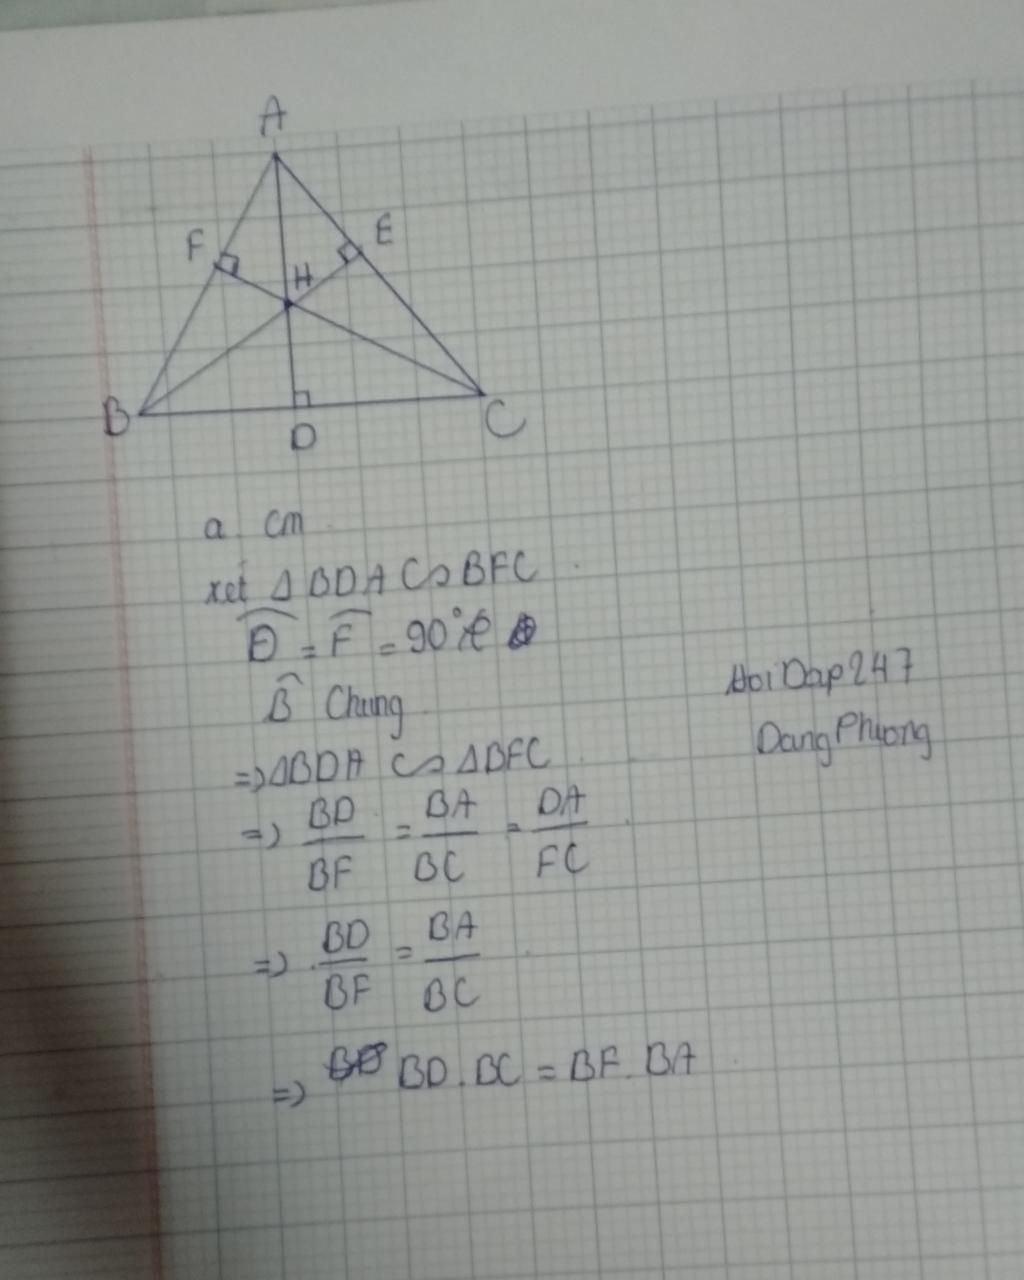 A
F
E
H
B
D
C
a. cm
xét ΔBDA ∽ BFC
D̂ = F̂ = 90°
B̂ Chung
=> ΔBDA ∽ ΔBFC
=> BD/BF = BA/BC = DA/FC
=> BD/BF = BA/BC
=> BD.BC = BF.BA
HoiDap247
DangPhuong